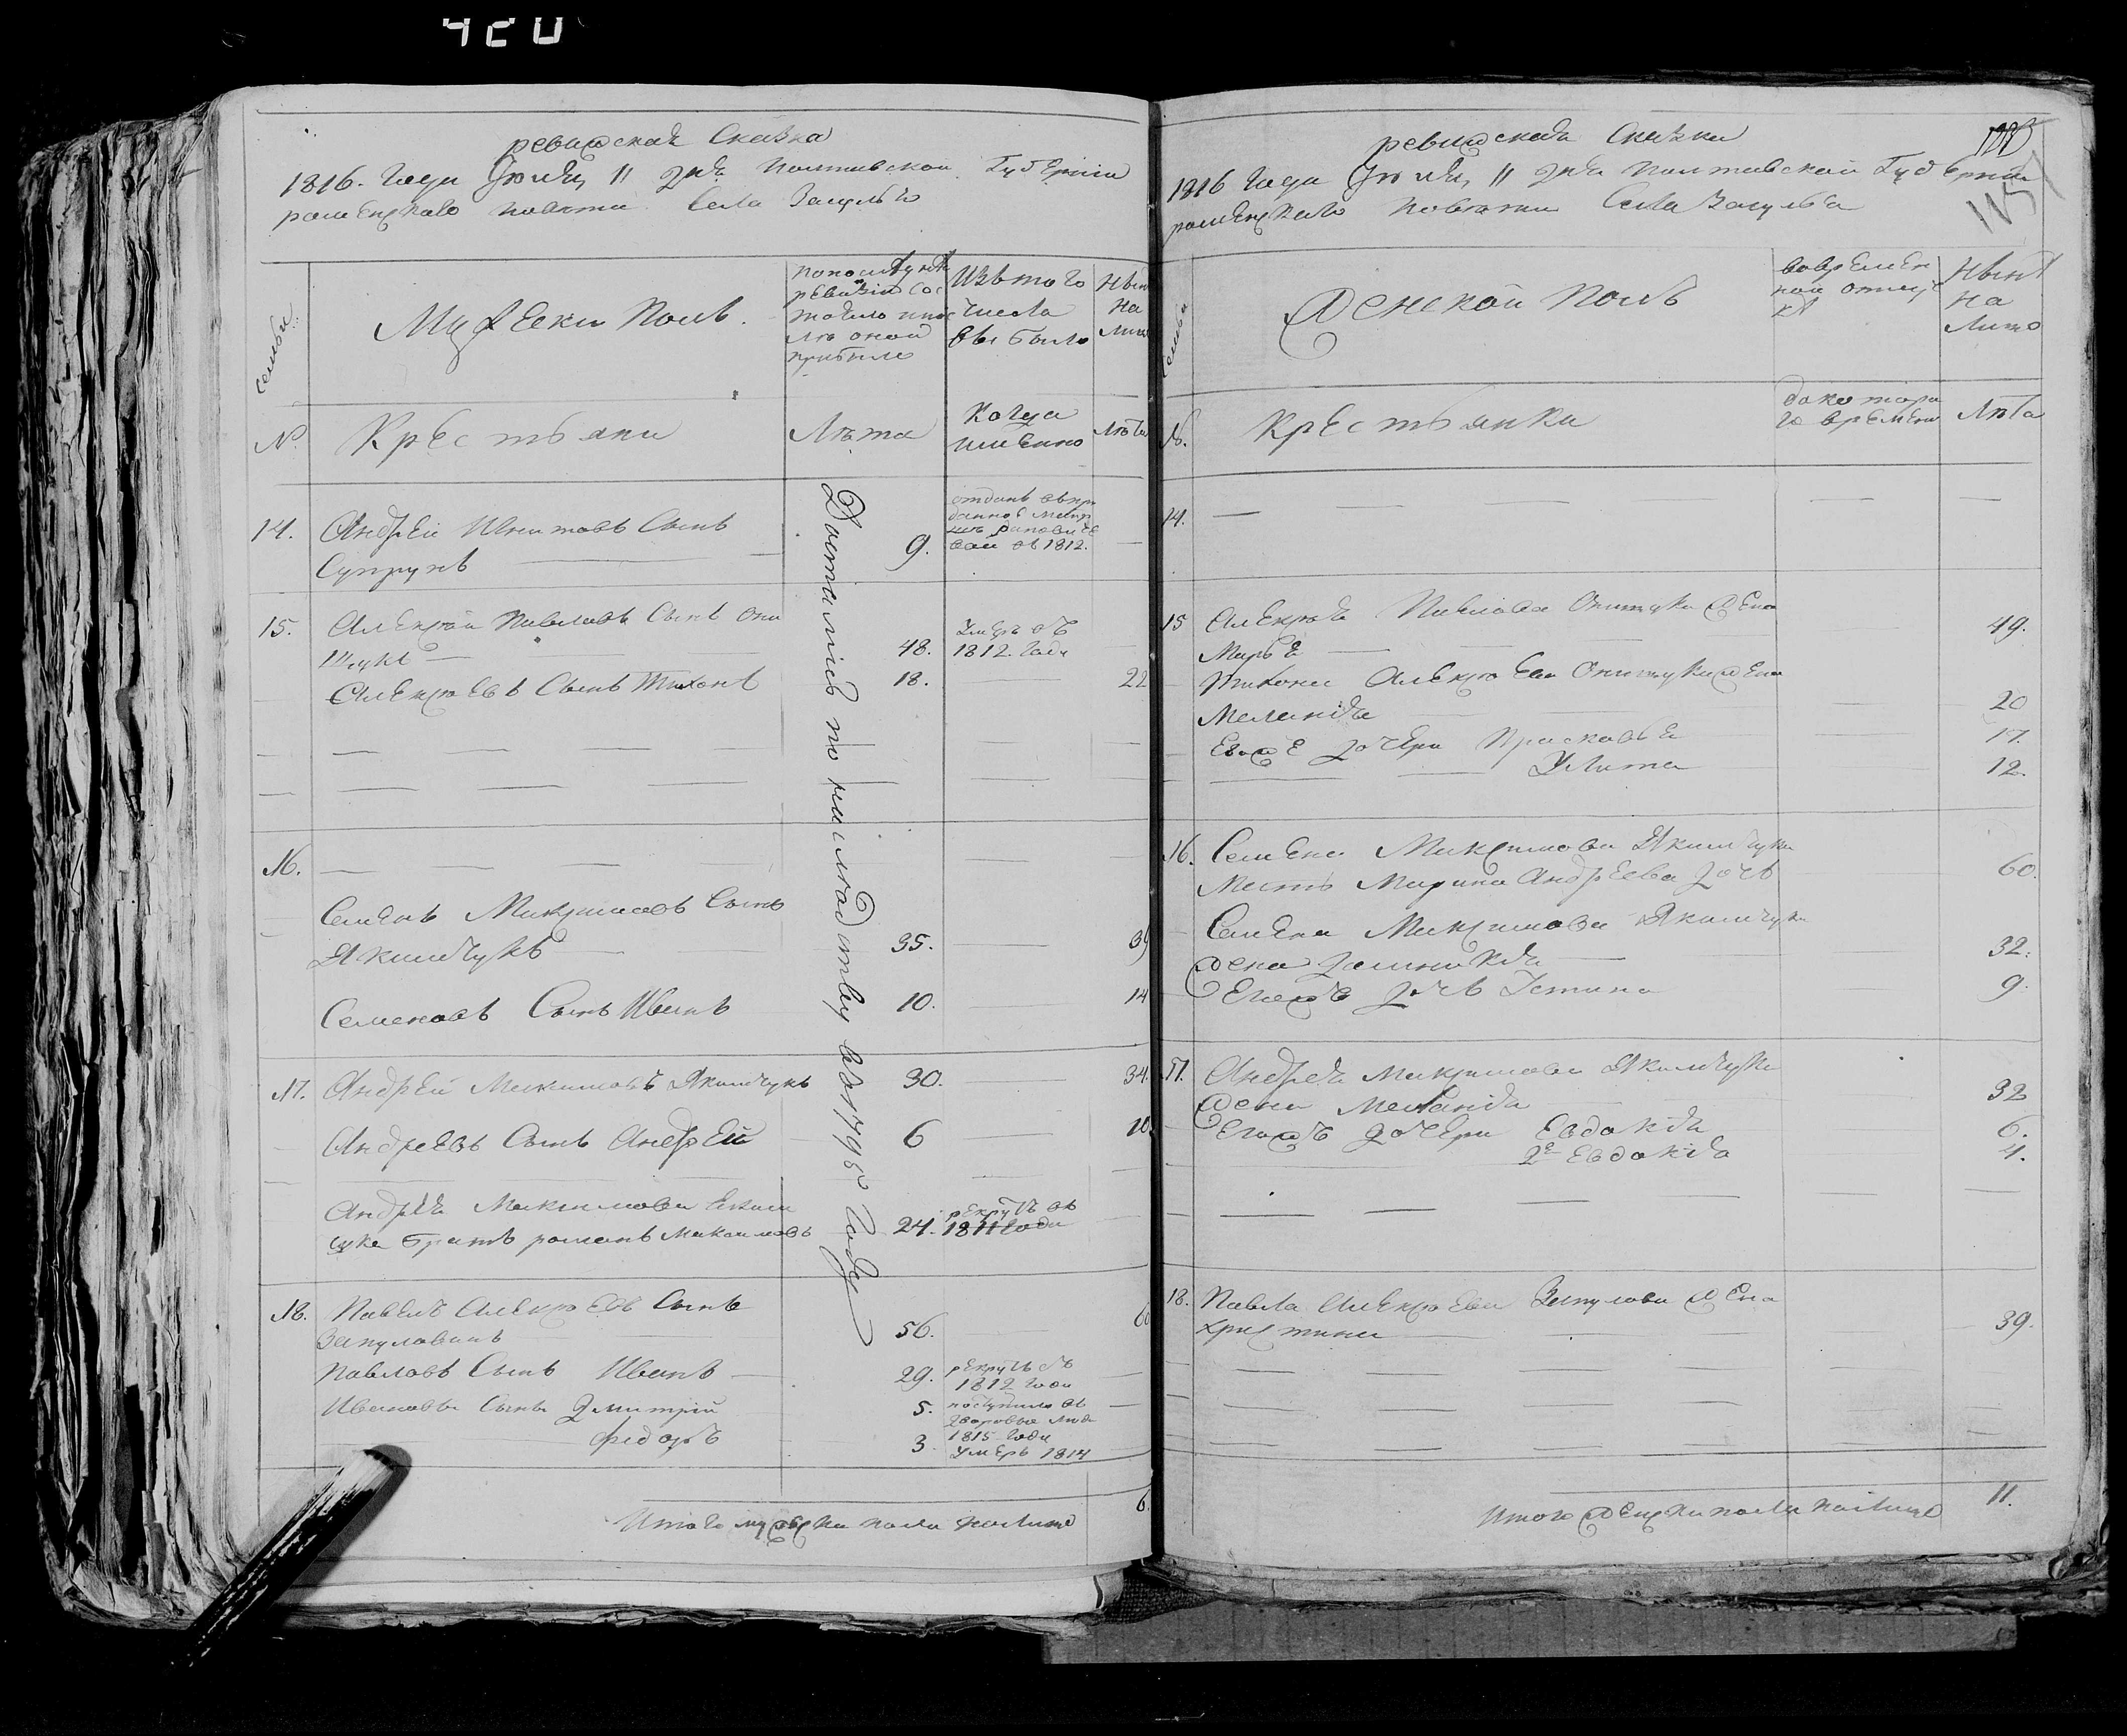 420
ревижская Сказка
1816. Года Июля 11 дня Полтавской Губернии
роменского повета Села Засулья
семьи
Мужеска Полъ.
По последней
ревизии сос
тояло и пос
ле оной
прибыло
Изъ того
числа
выбыло
Ныне
на
лицо
№.
Крестьяни
Лета
Когда
именно
Лета
Досталисъ по наследству въ 1795 Году
14. Андрей Игнатовъ Сынъ
Супрунъ
9.
отданъ
въ 1812.
15. Алексей Павловъ Сынъ Они
щукъ
48.
Умеръ въ
1812. Году
Алексеевъ Сынъ Тихонъ
18.
22
16.
Семенъ Максимовъ Сынъ
Якимчукъ
35.
39
Семеновъ Сынъ Иванъ
10.
14
17. Андрей Максимовъ Якимчукъ
30.
34.
Андреевъ Сынъ Андрей
6
10.
Андрея Максимова Еким
чука братъ романъ Максимовъ
24.
рекрутъ въ
1811 Году
18. Павелъ Алексеевъ Сынъ
56.
60
Павловъ Сынъ Иванъ
29.
рекрутъ въ
1812 Году
Ивановы Сыны Дмитрий
5.
поступилъ въ
дворовые люди
1815 Году
Федоръ
3
Умеръ 1814
Итого мужеска пола налицо
6.
ревижская Сказка
115
1816 Года Июля 11 дня Полтавской Губернии
роменского повета Села Засулья
семьи
Женской Полъ
во времен
ной отлуч
ке
Ныне
на
Лицо
№.
Крестьянки
до котора
го времени
Лета
14.
15 Алексея Павлова Онищука Жена
Марья
49.
Тихона Алексеева Онищука Жена
Маланія
20
Евоже дочери Прасковья
17.
Улита
12.
16. Семена Максимова Якимчука
Мать Марина Андреева дочь
60.
Семена Максимова Якимчука
Жена
32.
Егожъ дочь Устина
9.
17. Андрея Максимова Якимчука
Жена Меланія
32
Егожъ дочери Евдокія
6.
2я Евдокія
4.
18. Павла Алексеева Жена
христина
39.
Итого Женска пола налицо
11.